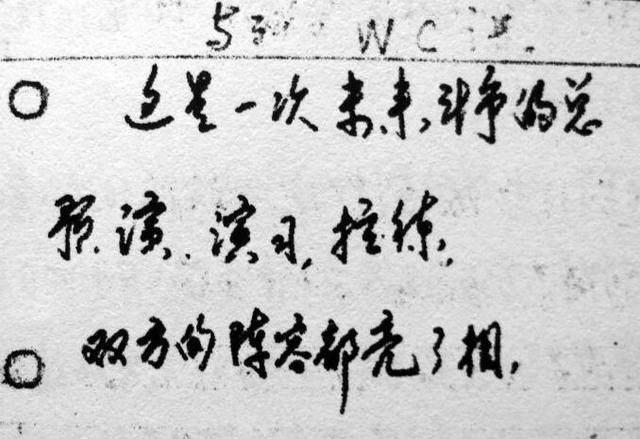 与 WC
这是一次未来斗争的总
预演、演习、拉练,
双方的阵容都亮了相,